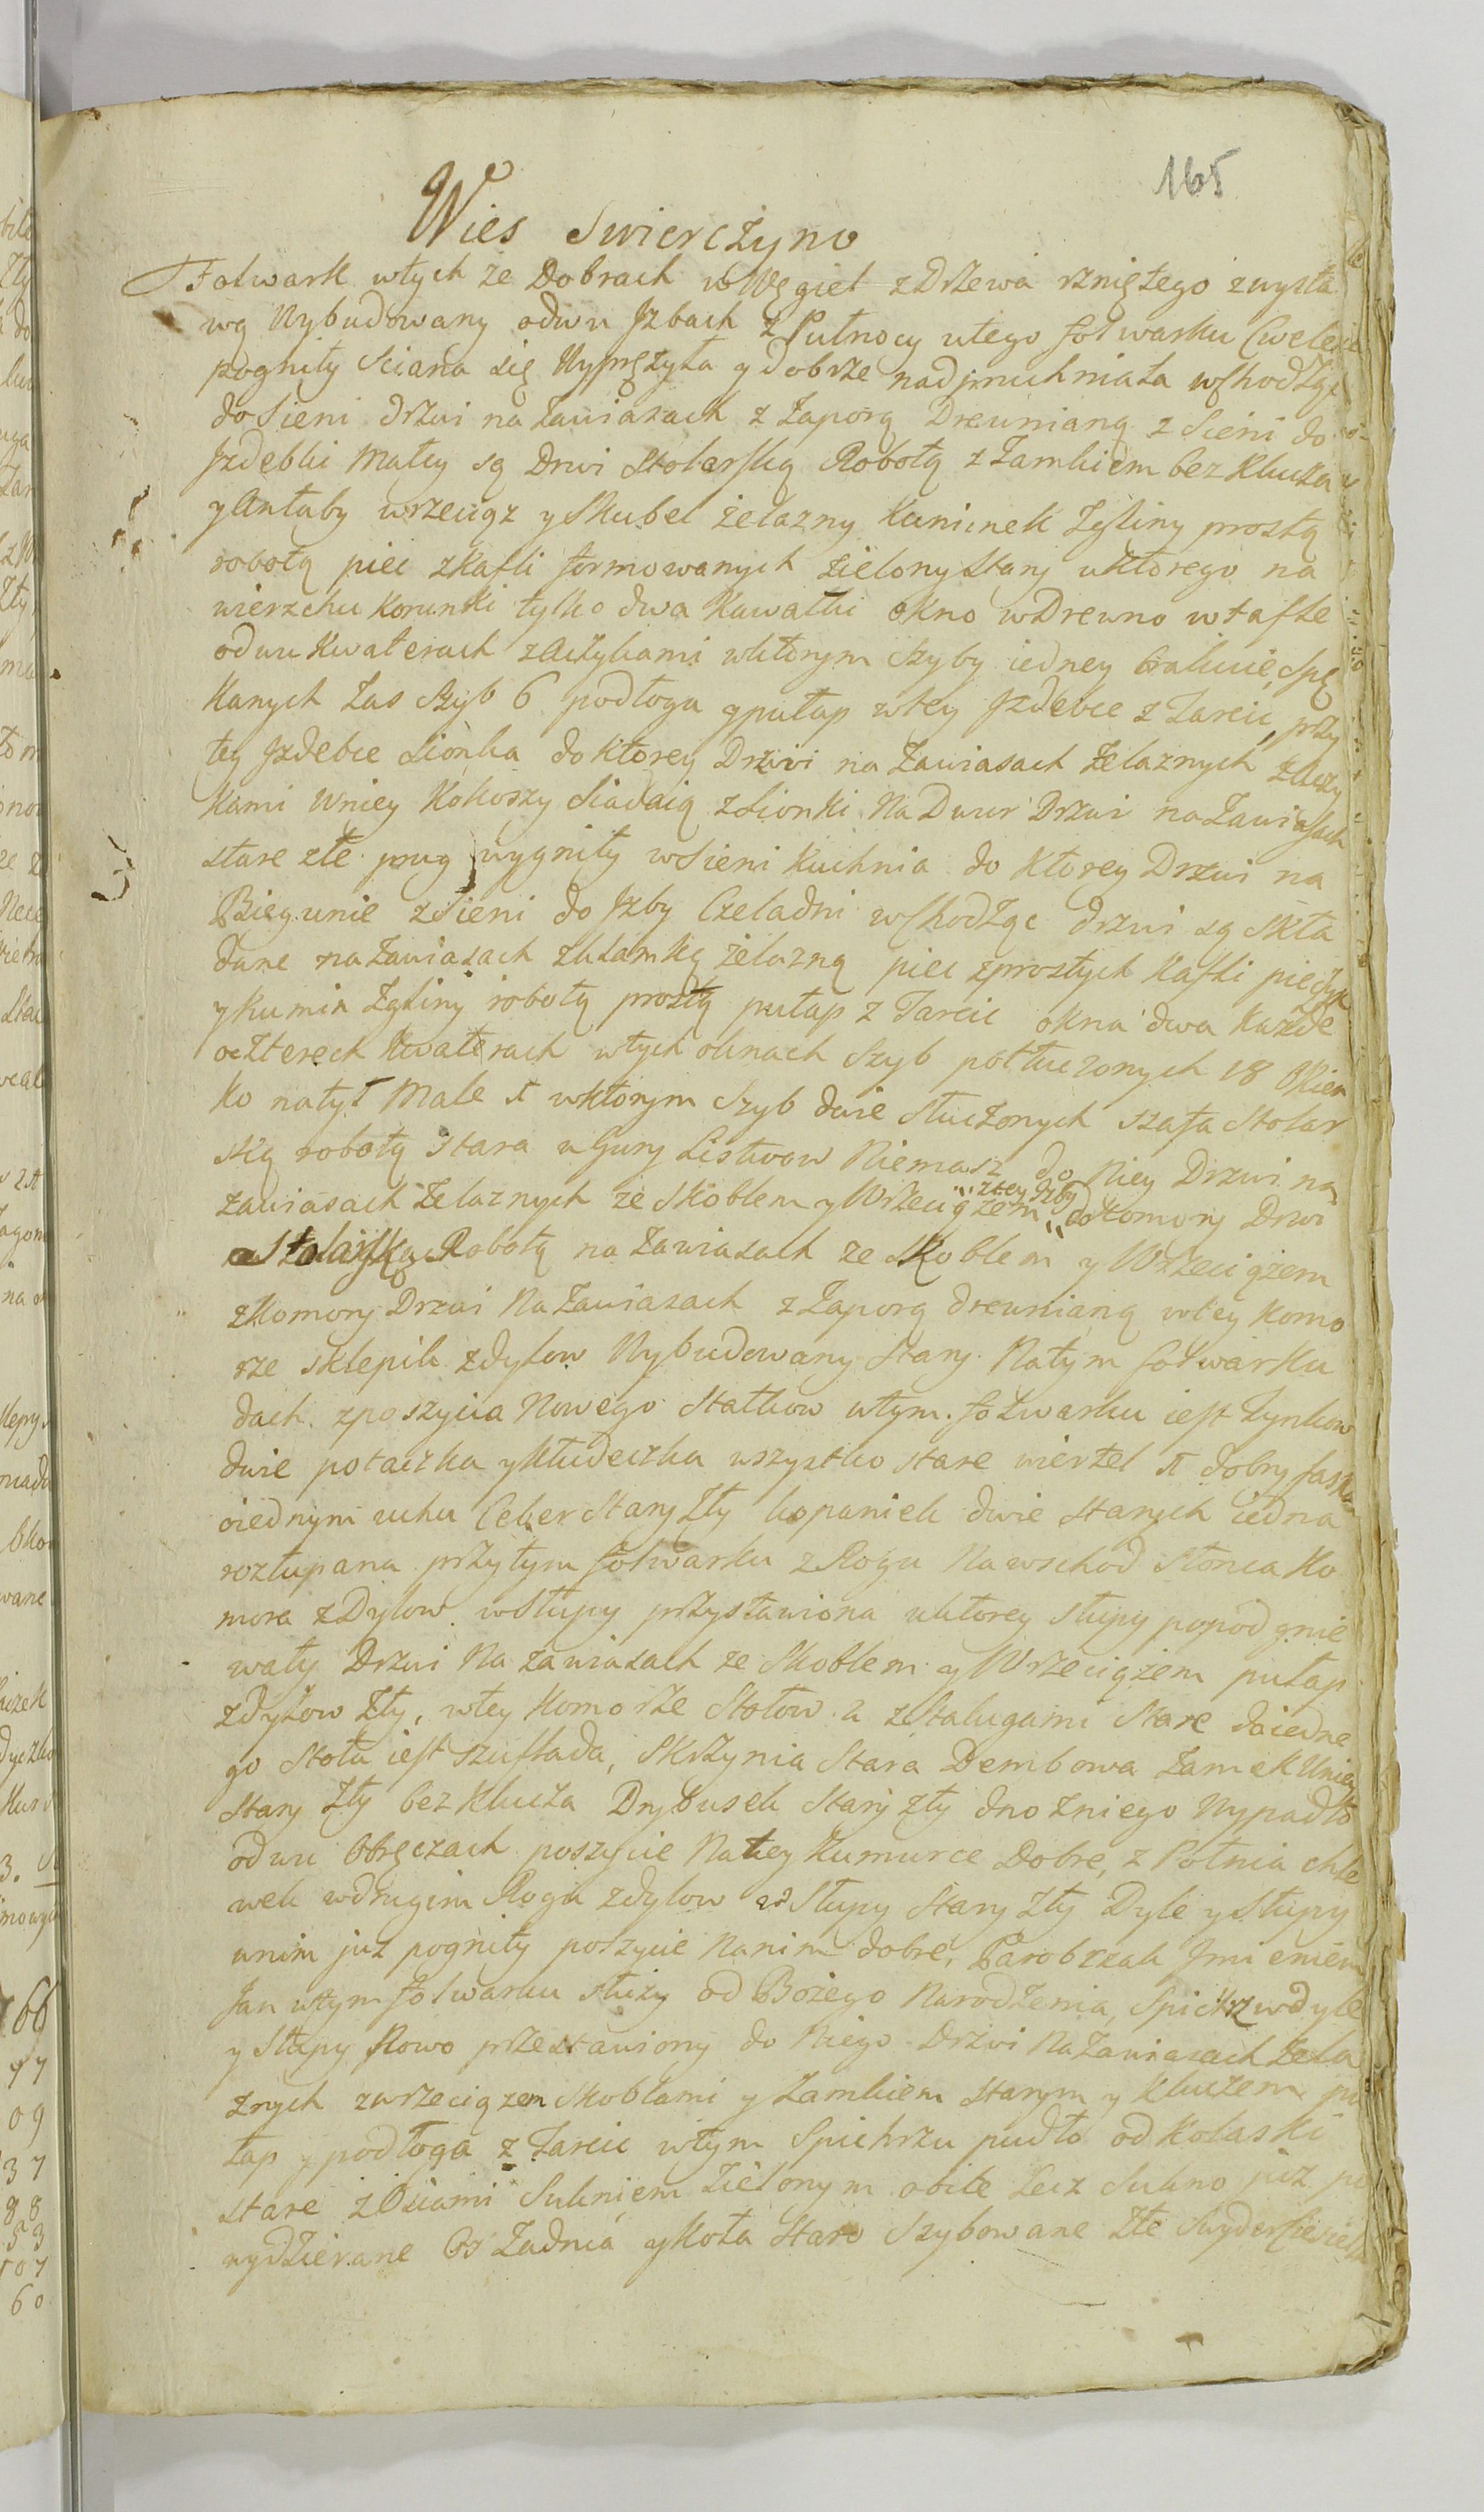 165
Wies Swierczyno
Folwark wtych ze Dobrach w Węgieł z Drzewa rzniętego zwysta
wą Wybudowany odwu Jzbach z Pułnocy utego folwarku Cwele
pogniły Sciana się Wypręzyła y dobrze nadpruchniała wchodząc
do Sieni drzwi na Zawiasach z Zaporą Drewnianą z Sieni do
Jzdebki Małey są Drwi Stolarską Robotą z Zamkiem bez Klucza
y Antaby wrzeciąz y Skubel żelazny Kuminek Zgliny prostą
robotą piec z Kafli formowanych zielony Stary uktorego na
wierzchu Korunki tylko dwa Kawałki okno w Drewno w tafle
odwu Kwaterach z Aczykami wktorym Szyby iedney brakuie, Spę
Kanych Zas Szyb 6 podłoga y pułap wtey Jzdebce z Tarcic, przy
tey Jzdebce Sionka do Ktorey Drzwi na Zawiasach Żelaznych zAczy
Kami wniey Kokoszy Siadaią z Sionki Na Dwur Drzwi na Zawiasach
stare złe prug wygniły w Sieni Kuchnia do Ktorey Drzwi na
Biegunie z Sieni do Jzby Czeladni wchodząc drzwi są Skła
dane na Zawiasach z klamką żelazną piec z prostych Kafli piecyk
y Kumin Zgliny robotą prostą pułap z Tarcic okna dwa Kazde
o czterech Kwaterach wtych oknach Szyb potłuczonych 18 Okien
Ko natył Małe 1 wktorym Szyb dwie Stłuczonych szafa Stolar
ską robotą Stara u Gury Listwow Niemasz do Niey Drzwi na
zawiasach Żelaznych ze Skoblem y Wrzeciązem "ztey Jzby" do Komory Drwi
Stolarską Robotą na Zawiasach ze Skoblem y Wrzeciążem
z Komory Drzwi Na Zawiasach z Zaporą drewnianą wtey Komo
rze sklepik z dylow Wybudowany Stary. Natym folwarku
dach z poszycia Nowego Statkow wtym folwarku iest Zynkow
dwie potaczka y kłudeczka wszystko stare wiertel 1 dobry faska
oiednym uchu Ceber Stary Zły kopaniek dwie Starych iedna
rozłupana przytym folwarku z Rogu Na wschod Słonca Ko
mora z Dylow w Słupy przystawiona uktorey słupy popod gnie
wały Drzwi Na zawiasach ze Skoblem y Wrzeciążem pułap
z dylow Zły, wtey Komorze Stołow 2 z Stalugami Stare do iedne
go Stołu iest szuflada, Skrzynia Stara Dembowa Zamek Uniey
Stary Zły bez Klucza Drybusek Stary zły dno Zniego Wypadło
odwu Obręczach poszycie Na tey Kumurce Dobre, z Połnia chle
wek wdrugim Rogu z dylow w Słupy Stary Zły Dyle y Słupy
unim juz pogniły poszycie Nanim dobre, Parobczak Jmieniem
Jan wtym folwarku służy od Bożego Narodzenia, Spichrz w dyle
y Słupy Nowo przestawiony do Niego Drzwi Na Zawiasach Żela
znych zwrzeciązem Skoblami y Zamkiem Starym y Kluczem pu
łap y podłoga z Tarcic wtym Spichrzu pudło od Kolaski
stare z Osiami Sukniem Zielonym obite Lecz Sukno już po
wydzierane Os Zadnia y Koła Stare Szybowane Złe